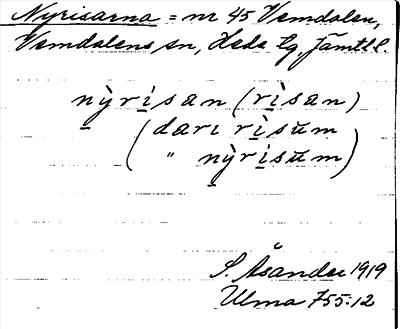 Nyrisarna = nr 45 Vemdalen,
Vemdalens sn, Hede tg, Jämtl l.
nỳrìsan (rìsan)
(dari rìsūm
" nỳrìsūm)
S. Åsander 1919
Ulma 755:12